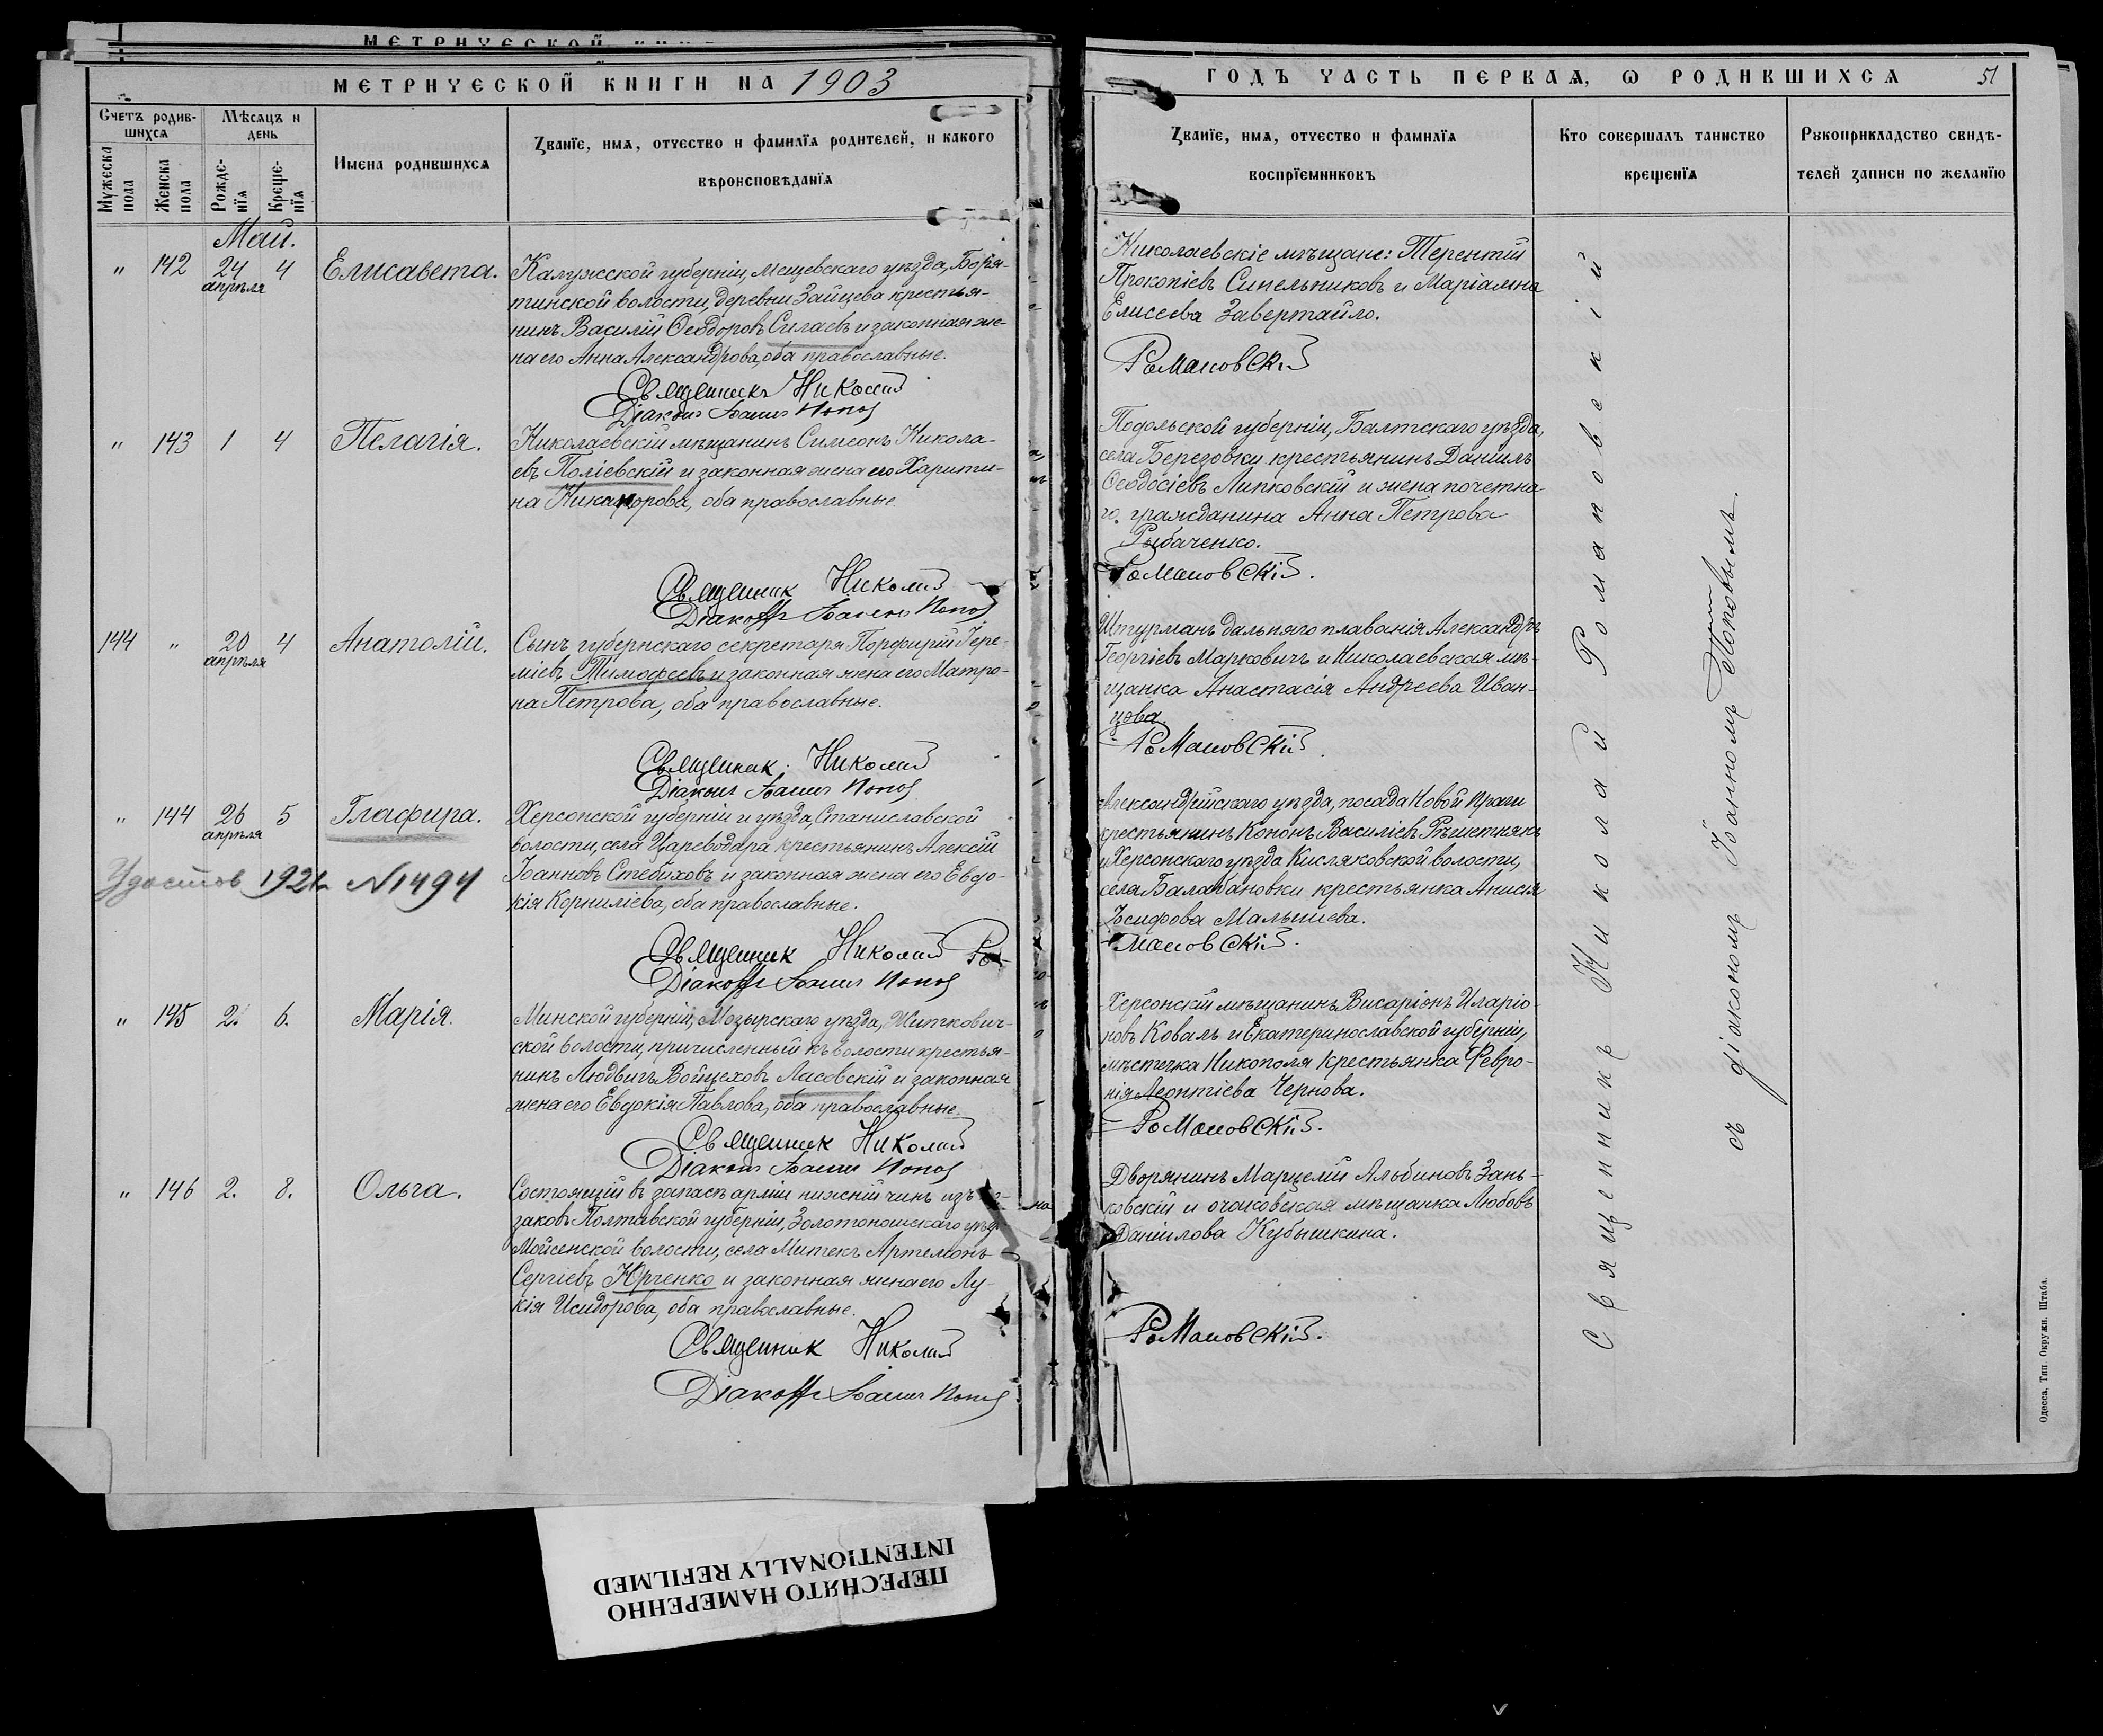 МЕТРИЧЕСКОЙ КНИГИ НА 1903
Счетъ родив-
шихся
Мѣсяцъ и
день
Мужеска
пола
Женска
пола
Рожде-
нія
Креще-
нія
Имена родившихся
Званіе, имя, отчество и фамилія родителей, и какого
вѣроисповѣданія
Май.
„ 142 24 апрѣля 4 Елисавета.
Калужской губерніи, Мещевскаго уѣзда, Боря-
тинской волости, деревни Зайцева крестья-
нинъ Василій Ѳеодоровъ Силаевъ и законная же-
на его Анна Александрова, оба православные.
Священникъ Николай
Діаконъ Іоаннъ Попов
„ 143 1 4 Пелагія.
Николаевскій мѣщанинъ Симеонъ Никола-
евъ Поліевскій и законная жена его Харити-
на Никанорова, оба православные
Священник Николай
Діаконъ Іоаннъ Попов
144 „ 20 апрѣля 4 Анатолій.
Сынъ губернскаго секретаря Порфирій Іере-
міевъ Тимофеевъ и законная жена его Матро-
на Петрова, оба православные.
Священник Николай
Діаконъ Іоаннъ Попов
„ 144 26 апрѣля 5 Глафира.
Удостов 192 N1494
Херсонской губерніи и уѣзда, Станиславской
волости, села Цареводара крестьянинъ Алексій
Іоанновъ Стебиховъ и законная жена его Евдо-
кія Корниліева, оба православные.
Священник Николай Ро-
Діаконъ Іоаннъ Попов
„ 145 2. 6. Марія.
Минской губерніи, Мозырскаго уѣзда, Житкович-
ской волости, причисленный къ волости крестья-
нинъ Людвигъ Войцеховъ Ласовскій и законная
жена его Евдокія Павлова, оба православные.
Священник Николай
Діаконъ Іоаннъ Попов
„ 146 2. 8. Ольга.
Состоящій въ запасѣ арміи нижній чинъ изъ ка-
заковъ Полтавской губерніи, Золотоношскаго уѣзд
Мойсенской волости, села Митекъ Артемонъ
Сергіевъ Юрченко и законная жена его Лу-
кія Исидорова, оба православные.
Священник Николай
Діаконъ Іоаннъ Попов
ГОДЪ ЧАСТЬ ПЕРВАЯ, Ѡ РОДИВШИХСЯ 51
Званіе, имя, отчество и фамилія
воспріемниковъ
Кто совершалъ таинство
крещенія
Рукоприкладство свидѣ-
телей записи по желанію
Николаевскіе мѣщане: Терентій
Прокопіевъ Синельниковъ и Маріамна
Елисеева Завертайло.
Романовскій
Подольской губерніи, Балтскаго уѣзда,
села Березовки крестьянинъ Даніилъ
Ѳеодосіевъ Липковскій и жена почетна-
го гражданина Анна Петрова
Рыбаченко.
Романовскій.
Штурманъ дальняго плаванія Александръ
Георгіевъ Марковичъ и Николаевская мѣ-
щанка Анастасія Андреева Иван-
цова.
Романовскій.
Александрійскаго уѣзда, посада Новой Праги
крестьянинъ Кононъ Василіевъ Рѣшетнякъ
и Херсонскаго уѣзда Кисляковской волости,
села Балабановки крестьянка Анисія
Іосифова Малышева.
мановскій.
Херсонскій мѣщанинъ Висаріонъ Иларіо-
новъ Коваль и Екатеринославской губерніи,
мѣстечка Никополя крестьянка Февро-
нія Леонтіева Чернова.
Романовскій.
Дворянинъ Марцелій Альбиновъ Зань-
ковскій и очаковская мѣщанка Любовь
Даніилова Кубышкина.
Романовскій.
Священникъ Николай Романовскій
съ діакономъ Іоанномъ Поповымъ.
Одесса, Тип Окружн. Штаба.
ПЕРЕСНЯТО НАМЕРЕННО
INTENTIONALLY REFILMED